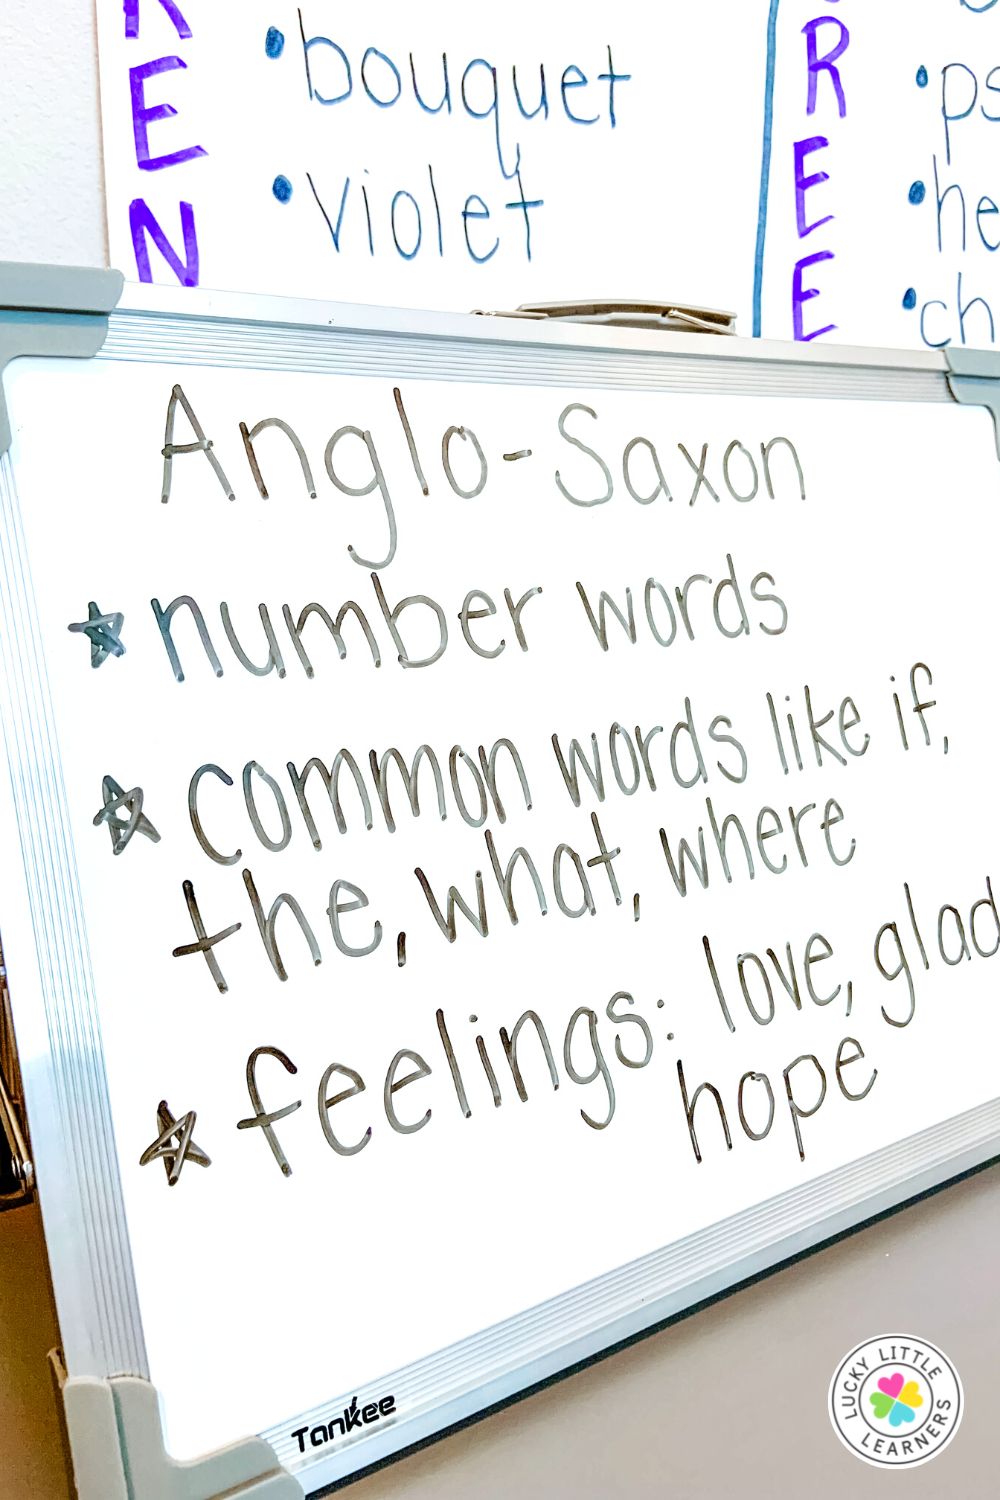 R
E
N
• bouquet
• violet
R
E
E
Anglo-Saxon
☆ number words
☆ common words like if,
the, what, where
☆ feelings: love, glad
hope
Tankee
LUCKY LITTLE
LEARNERS